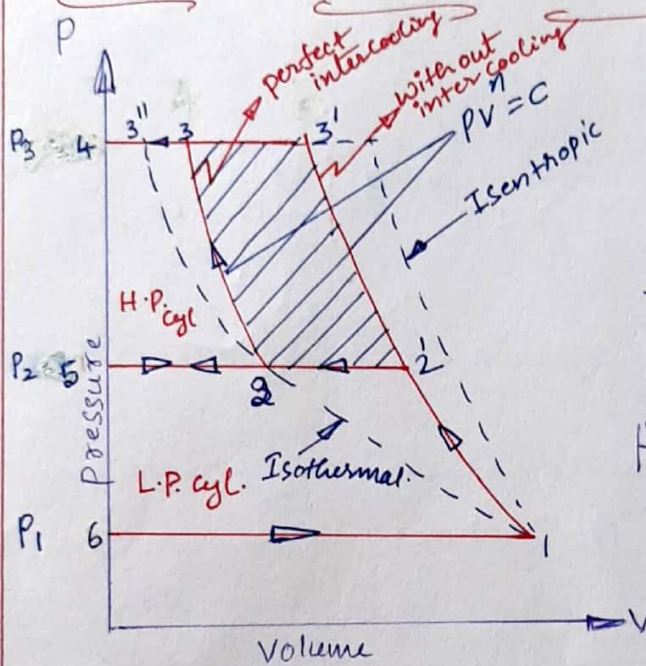 P
perfect
intercooling
without
inter cooling
PVⁿ = C
Isenthopic
P₃ 4 3" 3 3'
H.P. cyl
P₂ 5 2 2'
Pressure
Isothermal.
L.P. cyl.
P₁ 6 1
V
Volume